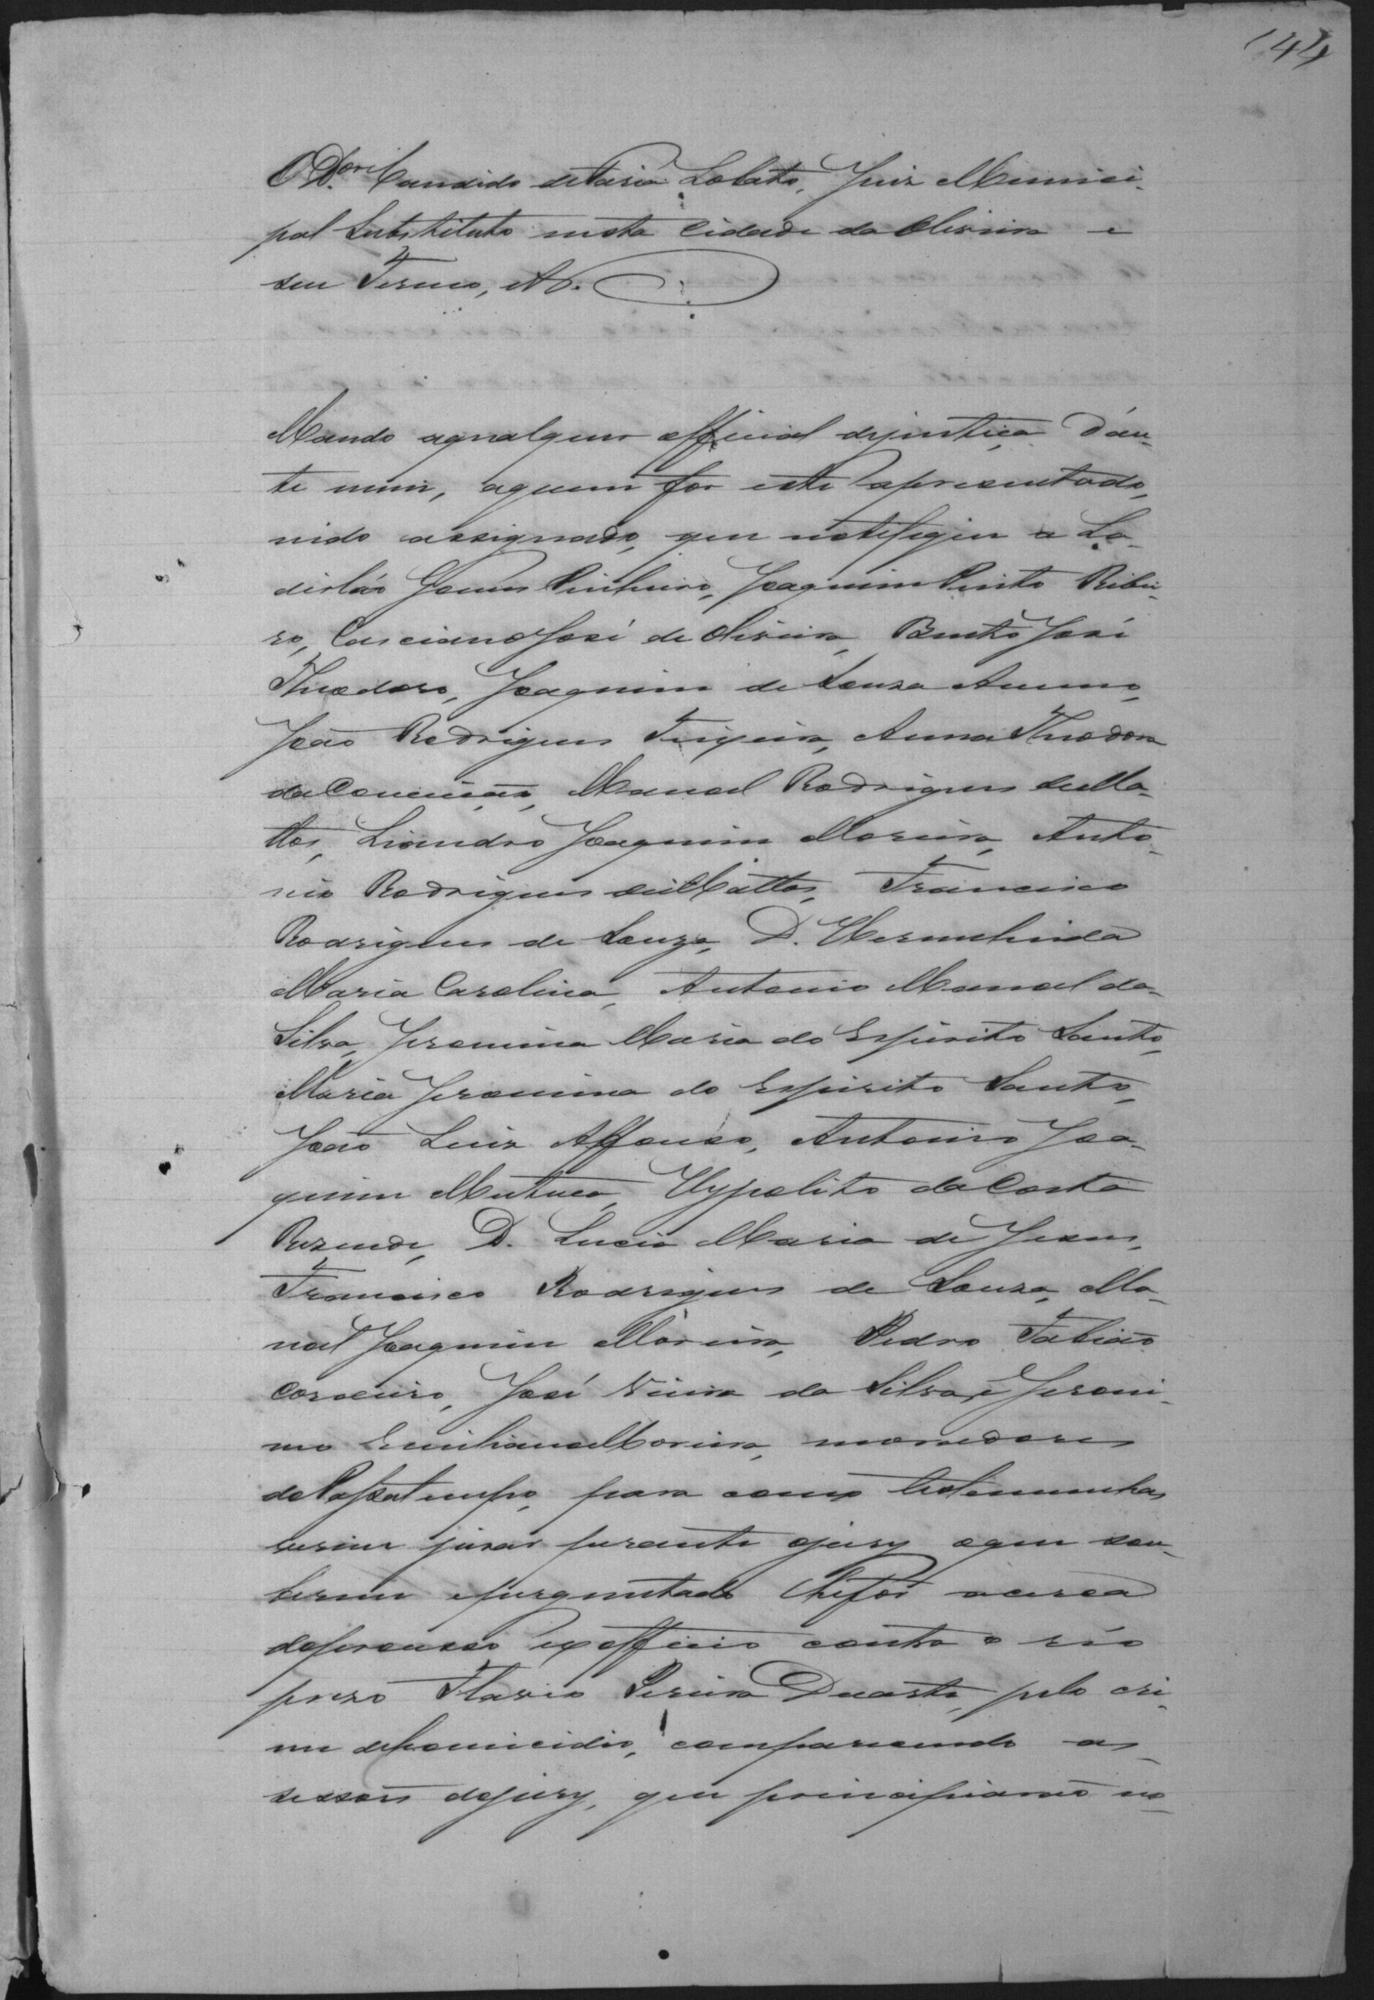 144
O Dor Candido de Faria Lobato, Juiz Munici-
pal Substituto nesta Cidade da Oliveira e
seu Termo, etc.
Mando aqualquer official dejustiça d'an-
te mim, aquem for este apresentado,
indo assignado, que notifique a La-
disláo Gomes Pinheiro, Joaquim Pinto Ribei-
ro, Casciano José de Oliveira, Bento José
Theodoro, Joaquim de Souza
João Rodrigues Teixeira, Anna Theodora
da Conceição, Manoel Rodrigues de Ma-
ttos, Liandro Joaquim Moreira, Anto-
nio Rodrigues de Mattos, Francisco
Rodrigues de Souza, D. Hermelinda
Maria Carolina, Antonio Manoel da
Silva, Jeronima Maria do Espirito Santo,
Maria Jeronima do Espirito Santo,
João Luiz Affonso, Antonio Joa-
quim Mutuca, Hypolito da Costa
Rezende, D. Lucia Maria de Jesus,
Francisco Rodrigues de Souza, Ma-
noel Joaquim Moreira, Pedro Fabião
Cordeiro, José Vieira da Silva, e Jeroni-
mo Emiliano Moreira, moradores
do Passatempo, para como testemunhas
virem jurar perante ojury oque sou-
berem eperguntado lhe for acerca
doprocesso ex officio contra o réo
prezo Flavio Pereira Duarte, pelo cri-
me dehomicidio, comparecendo as
sessões dojury, que principiarão no